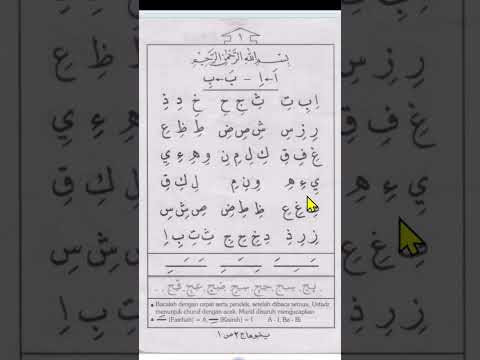 ١
بِسْمِ اللهِ الرَّحْمٰنِ الرَّحِيْمِ
اَ - اِ - بَ - بِ
اِ بِ تِ ثِ جِ حِ خِ دِ ذِ
رِ زِ سِ شِ صِ ضِ طِ ظِ عِ
غِ فِ قِ كِ لِ مِ نِ وِ هِ ءِ يِ
يِ ءِ هِ وِ نِ مِ لِ كِ قِ
فِ غِ عِ ظِ طِ ضِ صِ شِ سِ
زِ رِ ذِ دِ خِ حِ جِ ثِ تِ بِ اِ
Bacalah dengan cepat serta pendek, setelah dibaca semua, Ustadz
menunjuk churuf dengan acak. Murid disuruh mengucapkan
(Fatchah) = A, (Kasroh) = I A - I, Ba - Bi